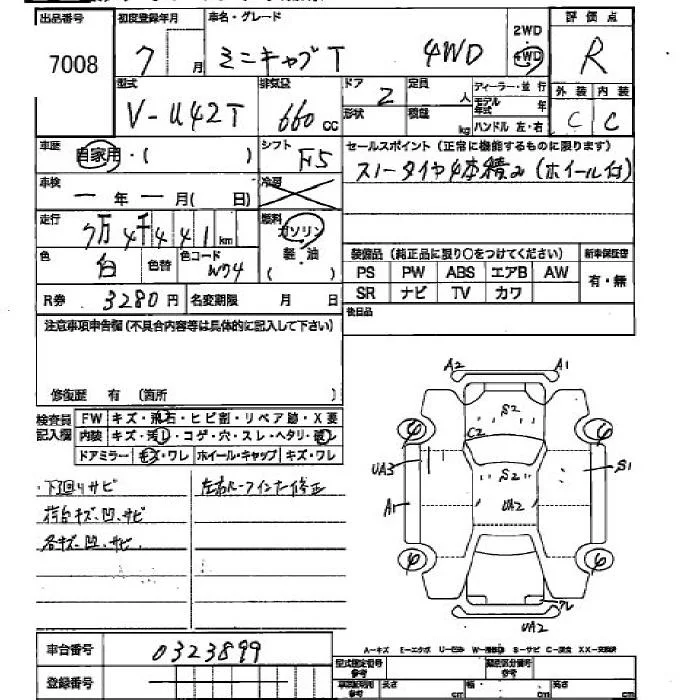 出品番号
7008
初度登録年月
7 月
車名・グレード
ミニキャブT 4WD
2WD
4WD
評価点
R
型式
V-U42T
排気量
660 cc
ドア
2
形状
定員 人
積載 kg
ディーラー・並行
モデル年式 年
ハンドル 左・右
外装 内装
C C
車歴
自家用・( )
シフト
F5
車検
ー年ー月( 日)
冷房
セールスポイント (正常に機能するものに限ります)
スノータイヤ4本積み(ホイール付)
走行
7万4千441km
燃料
ガソリン
軽・油
( )
色
白
色替
色コード
W94
装備品 (純正品に限り○をつけてください)
新車保証書
PS PW ABS エアB AW
有・無
SR ナビ TV カワ
R券 3280円
名変期限 月 日
後日品
注意事項申告欄(不具合内容等は具体的に記入して下さい)
修復歴 有 (箇所 )
検査員記入欄
FW キズ・飛石・ヒビ割・リペア跡・X要
内装 キズ・汚れ・コゲ・穴・スレ・ヘタリ・破れ
ドアミラー キズ・ワレ ホイール・キャップ キズ・ワレ
・下回りサビ
荷台キズ、凹、サビ
各キズ、凹、サビ
左右ルーフインナー修正
A2 A1
S2
C2
4 4
UA3
S2
S1
A1
UA2
4 4
ワレ
UA2
車台番号
0323899
登録番号
A-キズ E-エクボ S-サビ
型式指定番号
参考
類別区分番号
参考
長さ cm
幅 cm
高さ cm